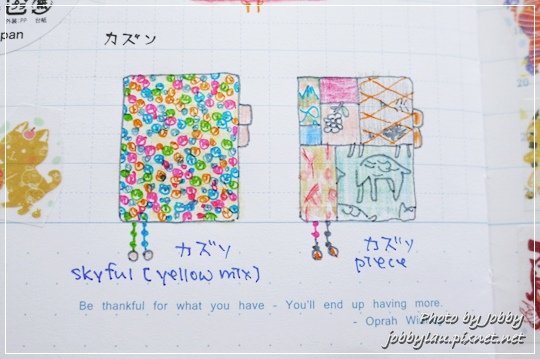 外箱:PP 台紙
pan
カズン
カズン
skyful (yellow mix)
カズン
piece
Be thankful for what you have - You'll end up having more.
- Oprah Wi
Photo by Jobby
jobbylau.pixnet.net